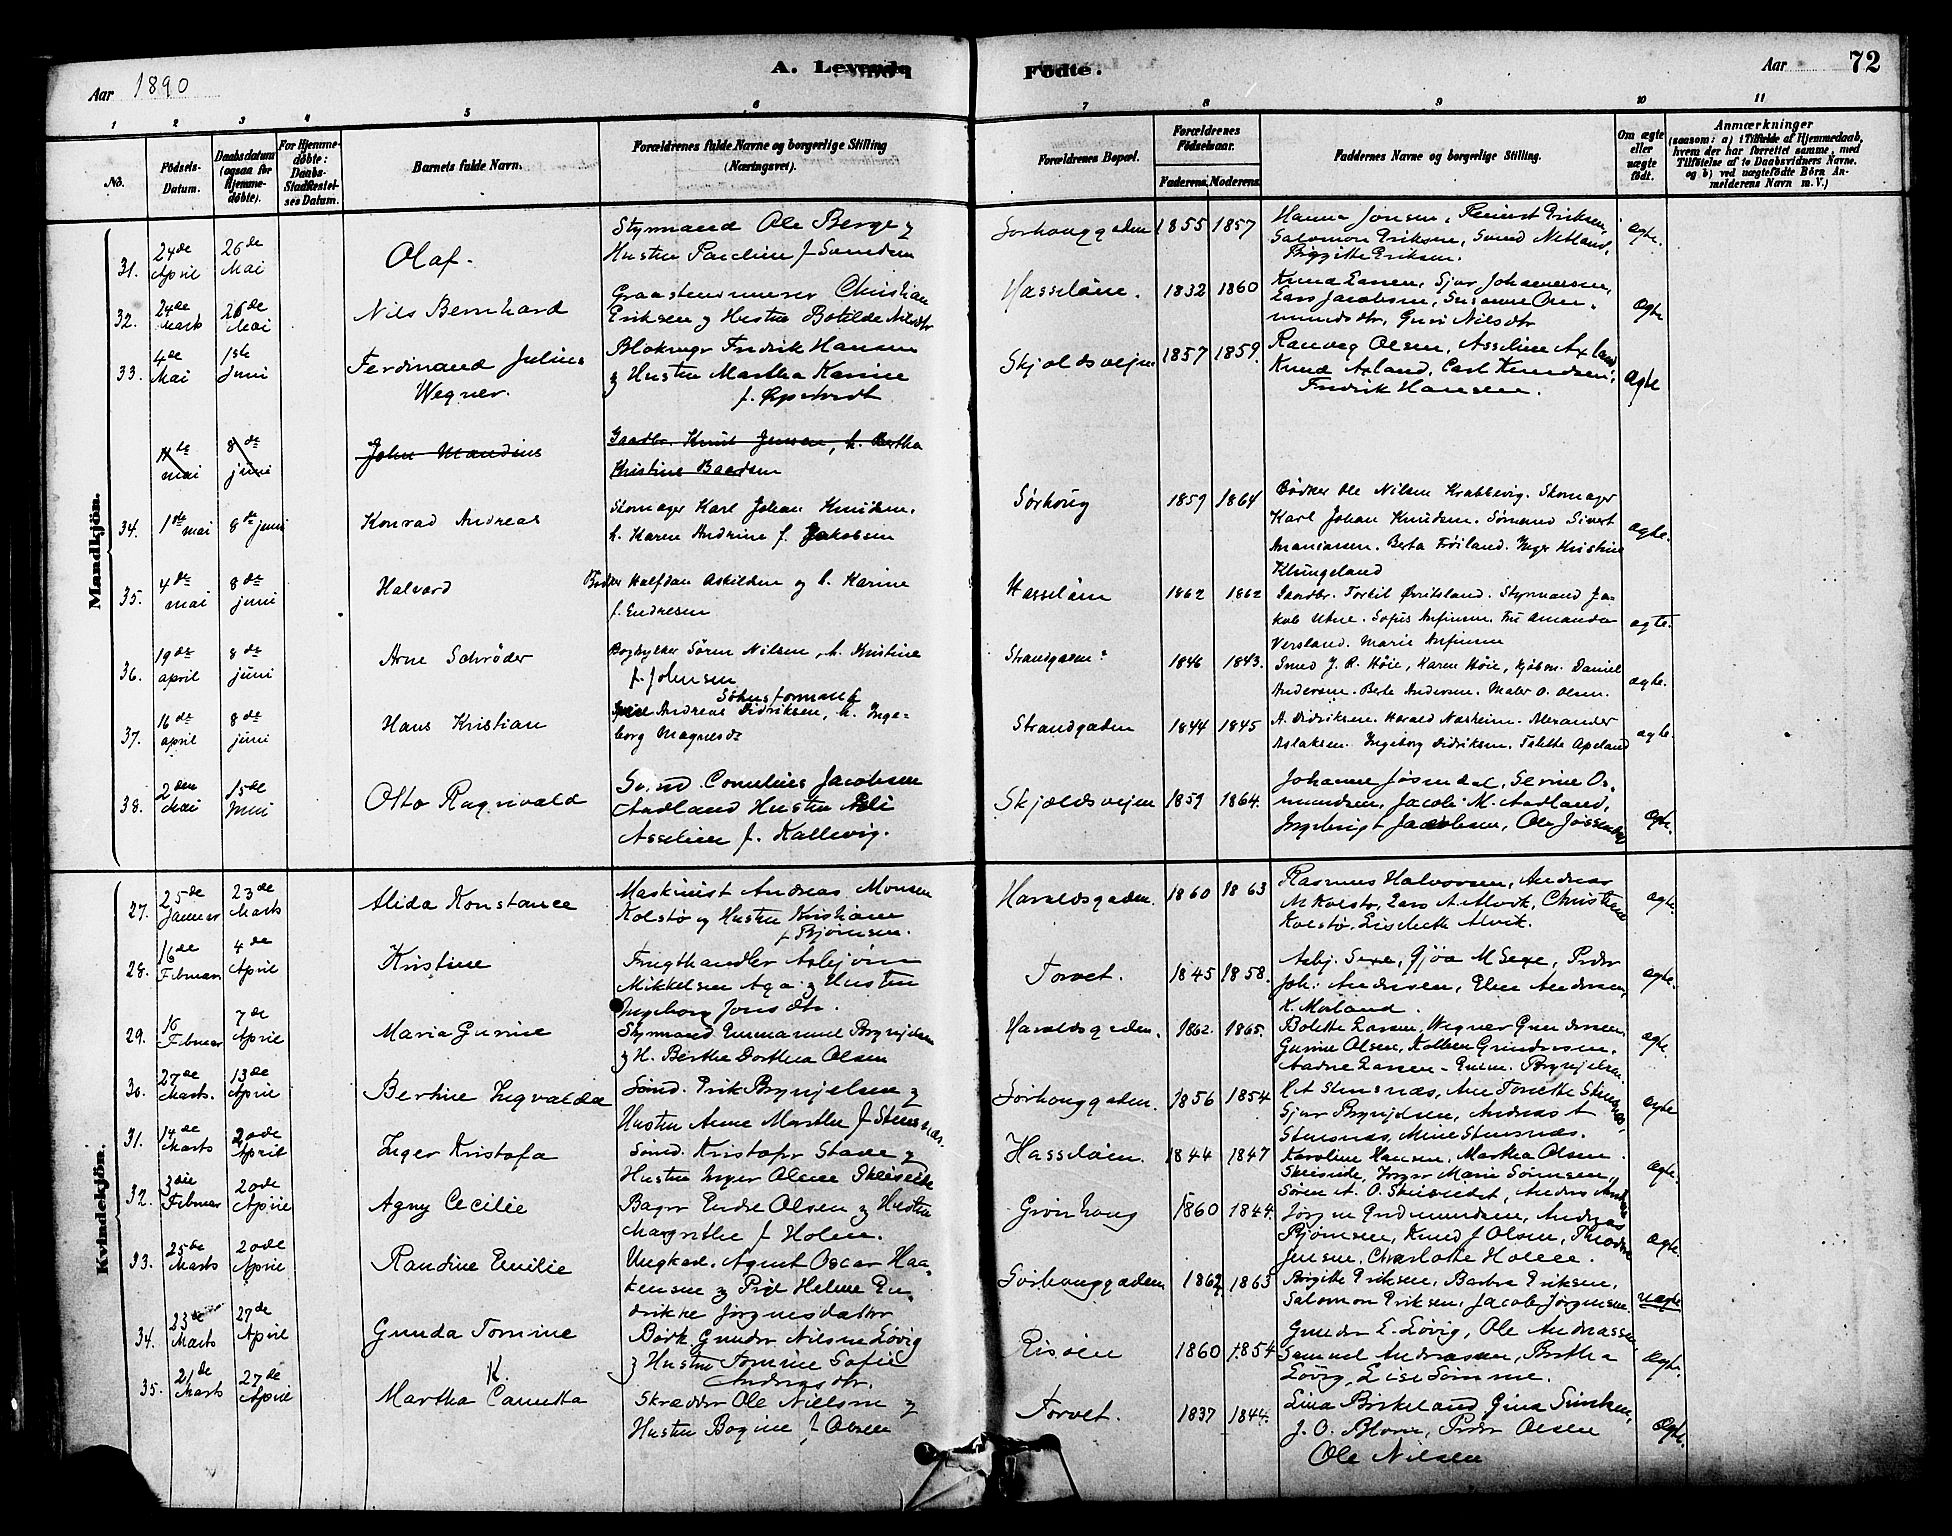 Aar 1890
A. Levende Fødte.
Aar 72
1 2 3 4 5 6 7 8 9 10 11
No.
Fødsels-Datum.
Daabsdatum (ogsaa for Hjemme-døbte).
For Hjemme-døbte: Daabs-Stadfæstel-ses Datum.
Barnets fulde Navn.
Forældrenes fulde Navne og borgerlige Stilling (Næringsvei).
Forældrenes Bopæl.
Forældrenes Fødselsaar.
Faderens. Moderens.
Faddernes Navne og borgerlige Stilling.
Om ægte eller uægte født.
Anmærkninger
(saasom: a) i Tilfælde af Hjemmedaab, hvem der har forrettet samme, med Tilføielse af to Daabsvidners Navne, og b) ved uægtefødte Børn An-melderens Navn m. V.)
Mandkjøn.
31. 24de April 26de Mai Olaf. Styrmand Ole Berge og Hustru 1855 1857 Hanna Jonsen, Salomon Eriksen, Svend Birgitte Eriksen. ægte.
32. 24de Marts 26de Mai Nils Bernhard Christian Eriksen og Hustru Botilde Nilsdtr Hasseløen. 1832 1860 Knud Larsen, Sjur Johannessen, Lars Jacobsen, Susanne Guri Nilsdtr ægte
33. 4de Mai 1ste Juni Ferdinand Julius Wegner. Fredrik Hansen og Hustru Martha Karine f. Skjoldsvejen 1857 1859. Olsen, Asseline Knud Carl Knudsen, Fredrik Hansen. ægte
11te mai 8de juni John Mandius Gaardbr. Knut Jensen, h. Bertha Kristine Baardsen
34. 1ste mai 8de juni Konrad Andreas Skomager Karl Johan Knudsen. h. Karen Andrine f. Jakobsen Sørhoug 1859 1864 Bødker Ole Nilsen Krabbevig. Skomager Karl Johan Knudsen. Sømand Sivert Ananiassen. Berta Frøiland. Inger Kristine Klungeland ægte.
35. 4de mai 8de juni Halvard Bødker Halfdan Askildsen og h. Karine f. Endresen Hasseløen 1862 1862 Gaardbr. Styrmand Jakob Utne. Sofus Anfinsen. Fru Amanda Versland. Marie Anfinsen ægte.
36. 19de april 8de juni Arne Schrøder Søren Nilsen, h. Kristine f. Johnsen Strandgaden 1846 1843. Smed J. R. Høie, Karen Høie, Daniel Andersen. Berte Andersen. Maler O. Olsen. ægte.
37. 16de april 8de juni Hans Kristian Andreas Didriksen, h. Ingeborg Magnesdr Strandgaden 1844 1845 A. Didriksen. Harald Næsheim. Alexander Aslaksen. Ingeborg Didriksen. Tolette Apeland ægte.
38. 2den Mai 15de Juni Otto Ragnvald Cornelius Jacobsen Aadland Hustru Asseline f. Kallevig. Skjoldsvejen 1859 1864. Johanne Jøsendal, Serine Osmundsen, Jacob M. Aadland, Ingebrigt Jacobsen, Ole ægte.
Kvindekjøn.
27. 25de Januar 23de Marts Alida Konstance Maskinist Andreas Monsen Kolstø og Hustru Kristiane f. Bjørnsen. Haraldsgaden. 1860 1863 Rasmus Halvorsen, Andreas M Kolstø, Lars A. Alvik, Christine Kolstø, Lisebeth Alvik. ægte.
28. 16de Februar 4de April Kristine Frugthandler Asbjørn Mikkelsen Aga og Hustru Ingeborg Jonsdtr. Torvet. 1845 1858. Asbj. Sexe, Gjøa M Sexe, Peder Joh. Andersen, Elen Andersen, K. Mæland. ægte.
29. 16 Februar 7de April Maria Gurine Styrmand Emmanuel Brynjelsen og H. Berthe Dorthea Olsen Haraldsgaden. 1862. 1865. Bolette Larsen, Wegner Gundersen, Gurine Olsen, Kolben Gundersen. ægte.
30. 27de Marts. 13de April Bertine Ingvalda Sømd. Erik Brynjelsen og Hustru Anne Marthe f. Stensnæs. Sørhouggaden. 1856 1854 Stensnæs, Ane Tonette Sjur Brynjelsen, Andreas A Stensnæs, Mine Stensnæs. ægte
31. 14de Marts 20de April Inger Kristofa Sømd. Kristofer Stave og Hustru Inger Olene Hasseløen. 1844 1847 Karoline Hansen, Martha Olsen Inger Marie Sørensen, Søren A. O. ægte.
32. 3die Februar 20de April Agny Cecilie Bager Endre Olsen og Hustru Margrethe f. Holm. Grønhaug 1860 1844. Jørgen Gudmundsen, Andreas Bjørnsen, Knud J Olsen, Jensen, Charlotte Holm. ægte.
33. 25de Marts 20de April Randine Emilie Ungkarl. Agent Oscar Haakensen og Pige Helene Endrikke Jørgensdatter Sørhouggaden 1862 1863 Birgitte Eriksen, Barbra Eriksen, Salomon Eriksen, Jacob Jørgensen uægte
34. 23de Marts 27de April Gunda Tomine Gunder Nilsen Løvig og Hustru Tomine Sofie Andreasdtr. Risøen 1860 1854 Gunder E. Løvig, Ole Andreassen, Samuel Andreassen, Bertha Løvig, Lise Sømme. ægte.
35. 21de Marts 27de April Martha K. Camitta Skrædder Ole Nielsen og Hustru Bogine f. Olsen Torvet. 1837 1844. Lina Birkeland, Gina J. O. Blom, Peder Olsen Ole Nilsen ægte.